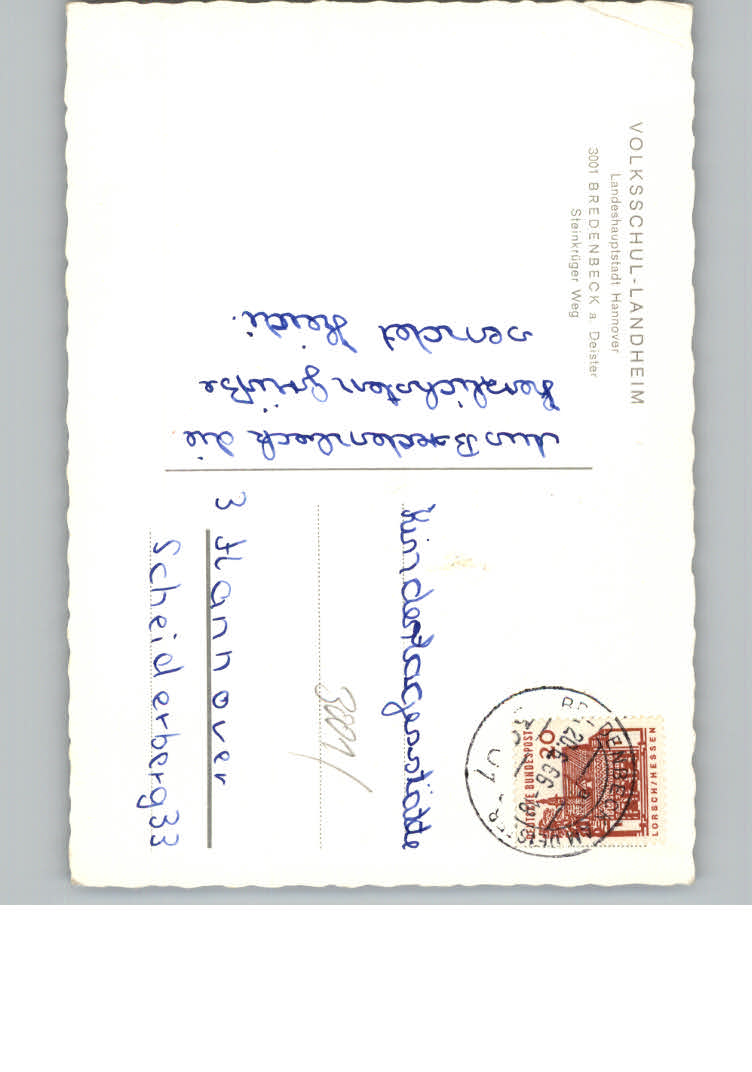 VOLKSSCHUL-LANDHEIM
Landeshauptstadt Hannover
3001 BREDENBECK a. Deister
Steinkrüger Weg
Aus Bredenbeck die
herzlichsten Grüße
sendet Heidi.
Kindertagesstätte
3001/
3 Hannover
Scheiderberg 33
DEUTSCHE BUNDESPOST
20
LORSCH/HESSEN